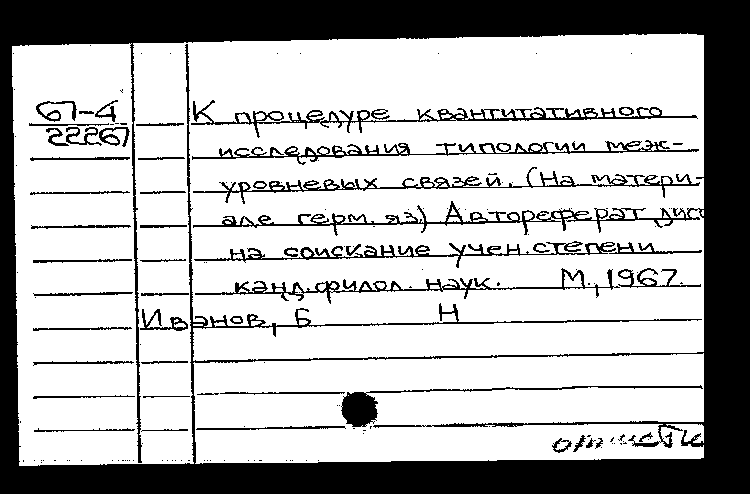 67-4 К процедуре квантитативного
22267 исследования типологии меж-
уровневых связей. (На матери-
але герм. яз) Автореферат дисс
на соискание учен. степени
канд. филол. наук. М., 1967.
Иванов, Б Н